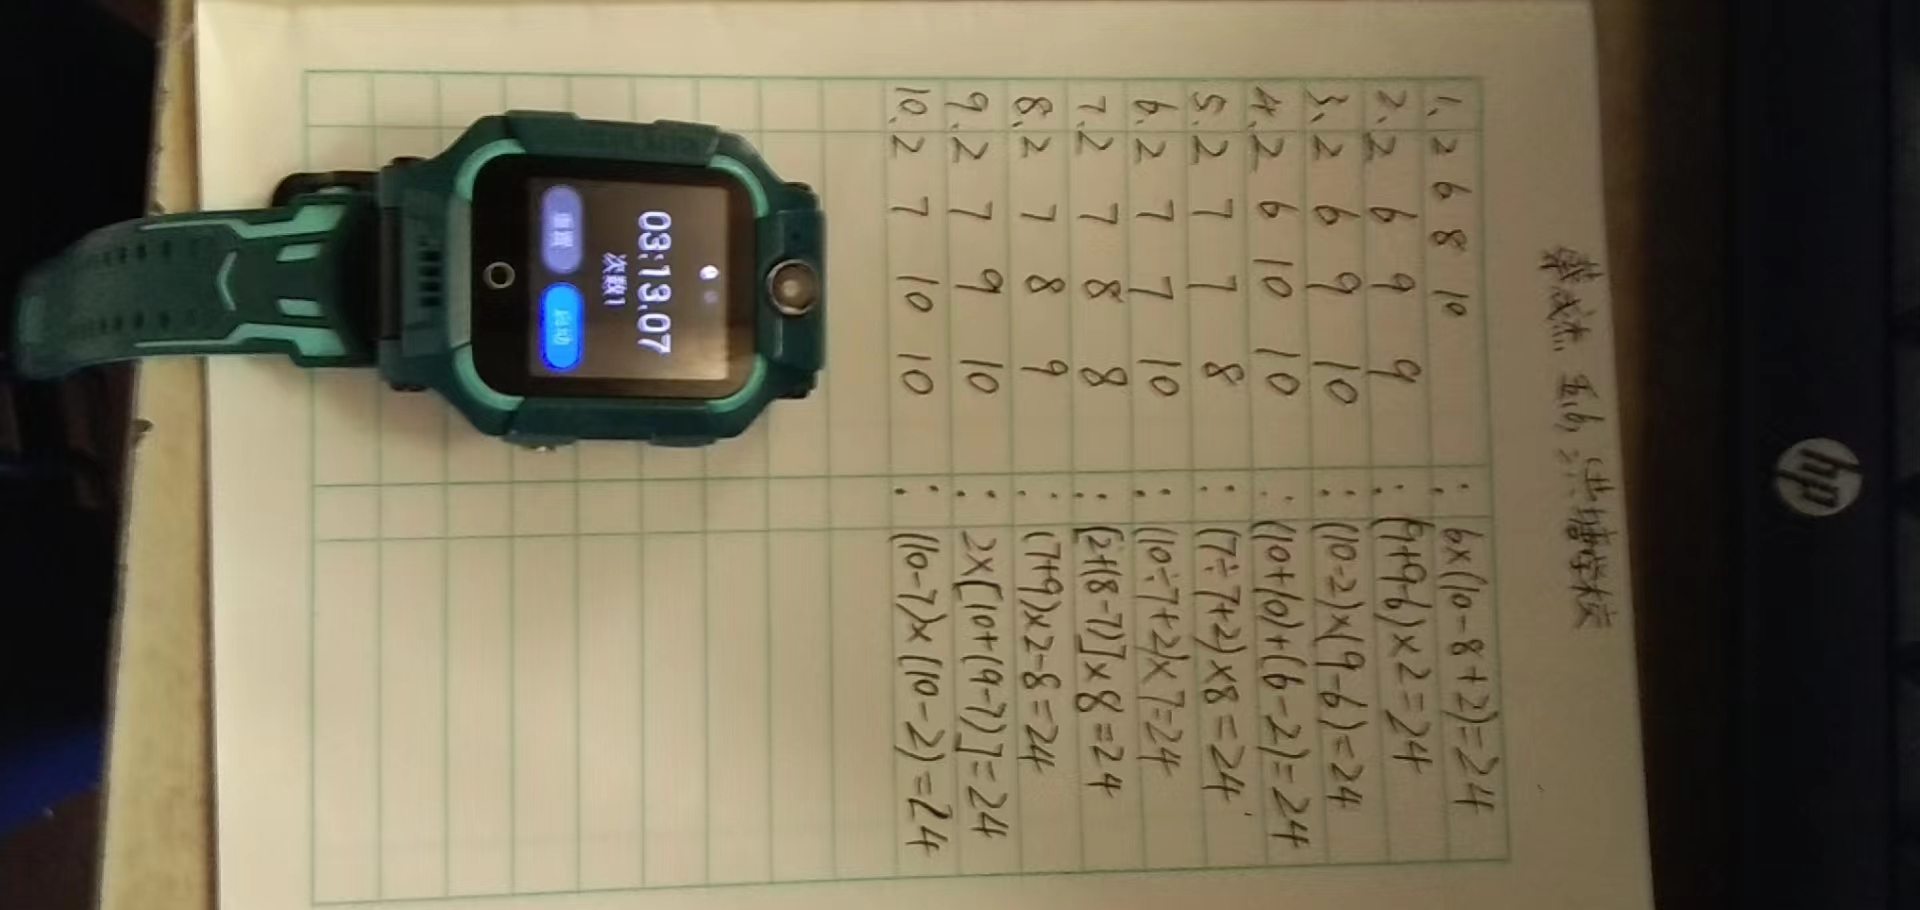 1. 2 6 8 10 : 6×(10-8+2)=24
2. 2 6 9 9 : (9+9-6)×2=24
3. 2 6 9 10 : (10-2)×(9-6)=24
4. 2 6 10 10 : (10+10)+(6-2)=24
5. 2 7 7 8 : (7÷7+2)×8=24
6. 2 7 7 10 : (10÷7+2)×7=24
7. 2 7 8 8 : [2+(8-7)]×8=24
8. 2 7 8 9 : (7+9)×2-8=24
9. 2 7 9 10 : 2×[10+(9-7)]=24
10. 2 7 10 10 : (10-7)×(10-2)=24
03:13.07
次数1
重置
启动
hp